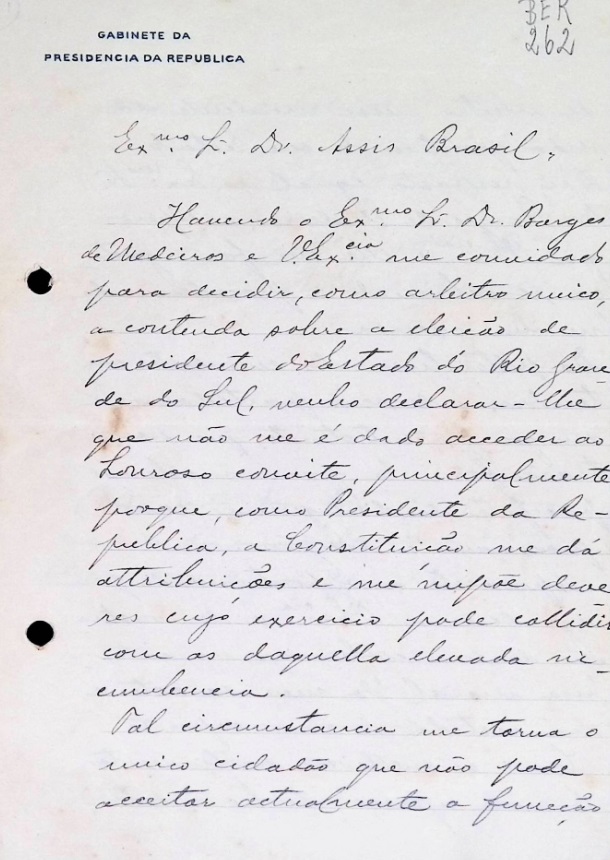 BER
262
GABINETE DA
PRESIDENCIA DA REPUBLICA
Ex.mo Sr. Dr. Assis Brasil,
Havendo o Ex.mo Sr. Dr. Borges
de Medeiros e V.Ex.cia me convidado
para decidir, como arbitro unico,
a contenda sobre a eleição de
presidente do Estado do Rio Gran-
de do Sul, venho declarar-lhe
que não me é dado acceder ao
honroso convite, principalmente
porque, como Presidente da Re-
publica, a Constituição me dá
attribuições e me impõe deve
res cujo exercicio pode collidir
com as daquella elevada in-
cumbencia.
Tal circumstancia me torna o
unico cidadão que não pode
acceitar actualmente a funcção